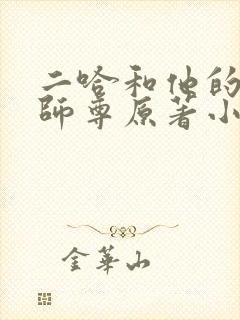 二哈和他的
師尊原著小
金華山